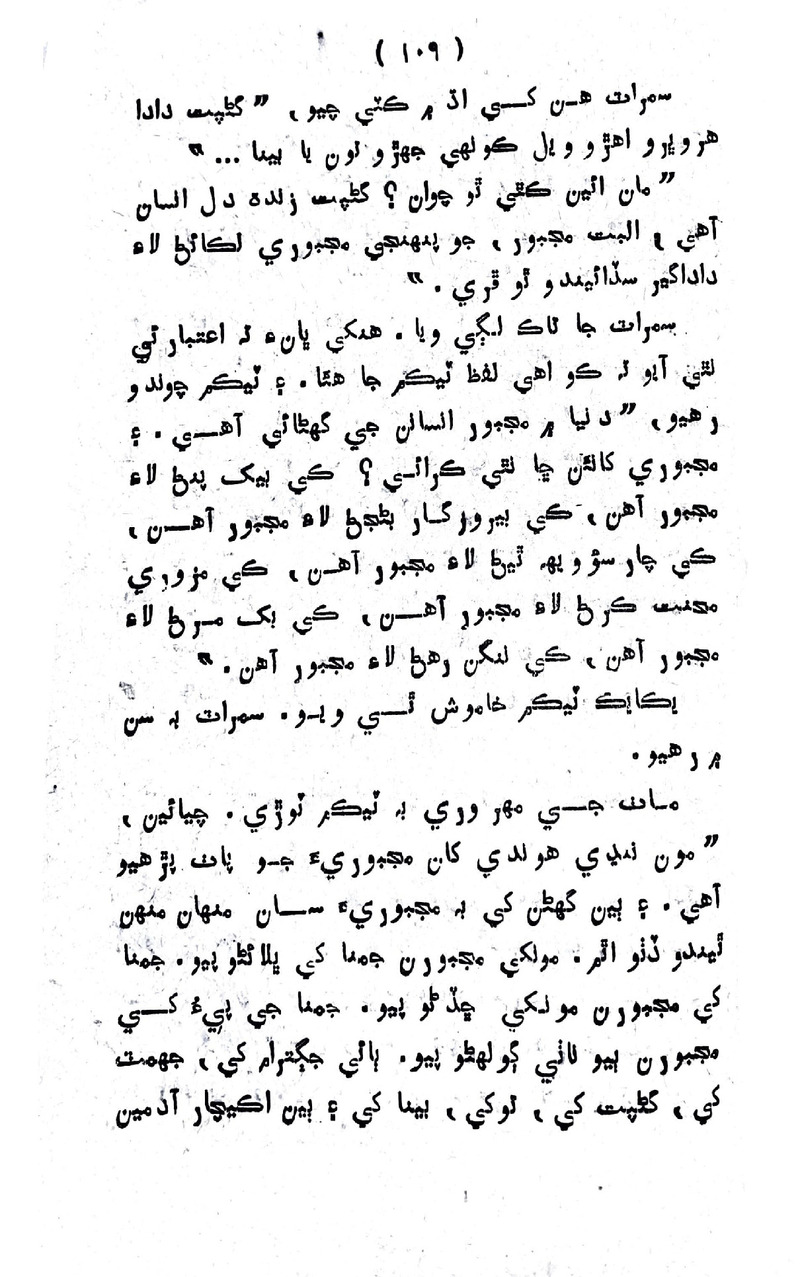 ( ١٠٩ )
سمرات هن کي اڌ ۾ ڪٽي چيو، ”گڻپت دادا
هروڀرو اهڙو ويل ڪونهي جهڙو تون يا ٻيا ... “
”مان ائين ڪٿي ٿو چوان؟ گڻپت زنده دل انسان
آهي ۽ البت مجبور، جو پنهنجي مجبوري لڪائڻ لاءِ
داداگير سڏائيندو ٿو ڦري . “
سمرات جا ٺاڪ لڳي ويا . هنکي پاڻ ۾ تہ اعتبار ئي
نٿي آيو تہ ڪو اهي لفظ ٽيڪم جا هئا. ۽ ٽيڪم چوندو
رهيو، ”دنيا ۾ مجبور انسانن جي گهڻائي آهي . ۽
مجبوري کانئن ڇا نٿي ڪرائي؟ ڪي بيک پنڻ لاءِ
مجبور آهن، ڪي بيروزگار بڻجڻ لاءِ مجبور آهن،
ڪي چارسؤويهہ ٿيڻ لاءِ مجبور آهن، ڪي مزوري
محنت ڪرڻ لاءِ مجبور آهن، ڪي بک مرڻ لاءِ
مجبور آهن، ڪي لنگن رهڻ لاءِ مجبور آهن . “
يڪايڪ ٽيڪم خاموش ٿي ويو. سمرات بہ سن
۾ رهيو .
مات جي مهر وري بہ ٽيڪم ٽوڙي . چيائين،
”مون ننڍي هوندي کان مجبوريءَ جو پاٺ پڙهيو
آهي. ۽ ٻين گهڻن کي بہ مجبوريءَ سان منهان منهن
ٿيندو ڏٺو اٿم. مونکي مجبورن جمنا کي ڀلائڻو پيو. جمنا
کي مجبورن مونکي ڇڏڻو پيو. جمنا جي پيءُ کي
مجبورن ٻيو ناٺي ڳولهڻو پيو. ڀائي جڳترام کي، جهمت
کي، گڻپت کي، توکي، بينا کي ۽ ٻين اڪيچار آدمين